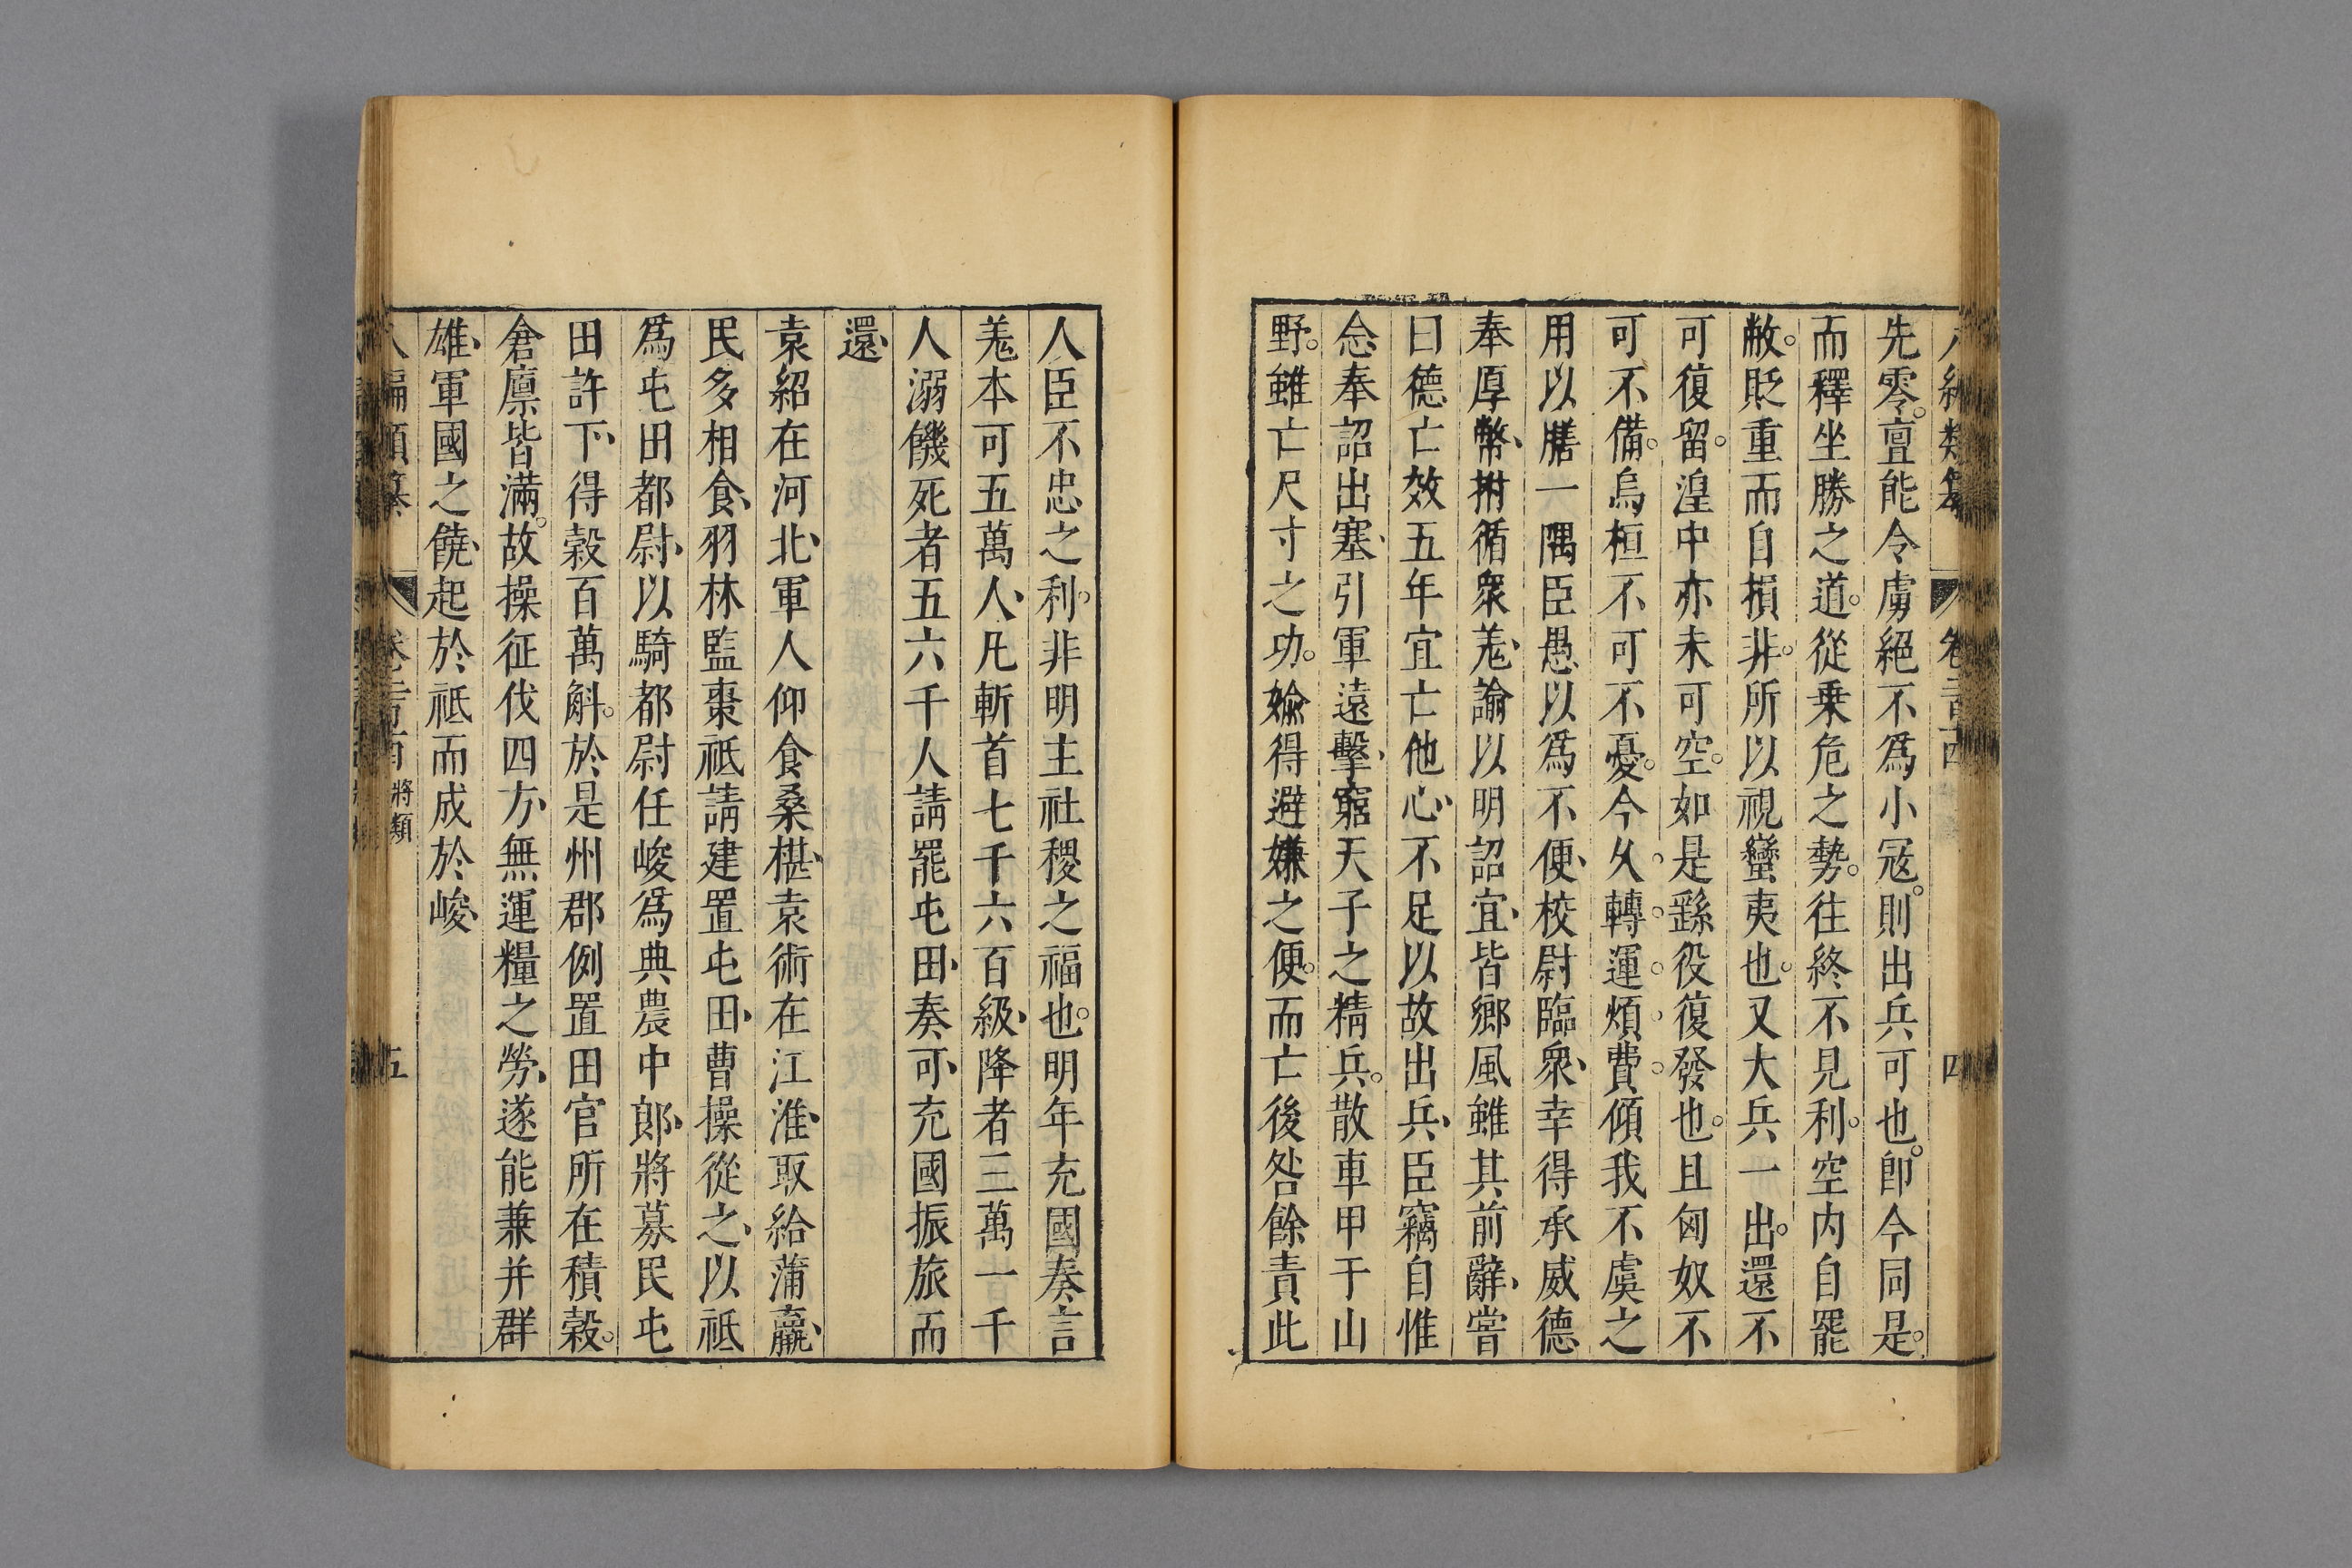 先零。亶能令虜絕不爲小冦。則出兵可也。卽今同是。
而釋坐勝之道。從乗危之勢。往終不見利。空内自罷
敝。貶重而自損。非所以視蠻夷也。又大兵一出。還不
可復留。湟中亦未可空。如是繇役復發也。且匈奴不
可不備。烏桓不可不憂。今久轉運煩費。傾我不虞之
用以膳一隅臣愚以爲不便、校尉臨衆、幸得承威德
奉厚幣、拊循衆羗、諭以明詔宜、皆鄉風雖其前辭、嘗
曰德亡效五年宜亡他心、不足以故出兵、臣竊自惟
念奉詔出塞、引軍遠擊、窮天子之精兵。散車甲于山
野。雖亡尺寸之功。媮得避嫌之便。而亡後咎餘責此
人臣不忠之利。非明主社稷之福也。明年充國奏言
羗本可五萬人、凡斬首七千六百級、降者三萬一千
人溺饑死者五六千人請罷屯田、奏可、充國振旅而
還、
袁紹在河北、軍人仰食桑椹、袁術在江淮、取給蒲蠃、
民多相食、羽林監棗祗請建置屯田、曹操從之、以祗
爲屯田都尉、以騎都尉任峻爲典農中郎、將募民屯
田許下、得穀百萬斛。於是州郡例置田官所在積穀。
倉廩皆滿。故操征伐四方、無運糧之勞、遂能兼并群
雄、軍國之饒、起於祗而成於峻、
將類
五